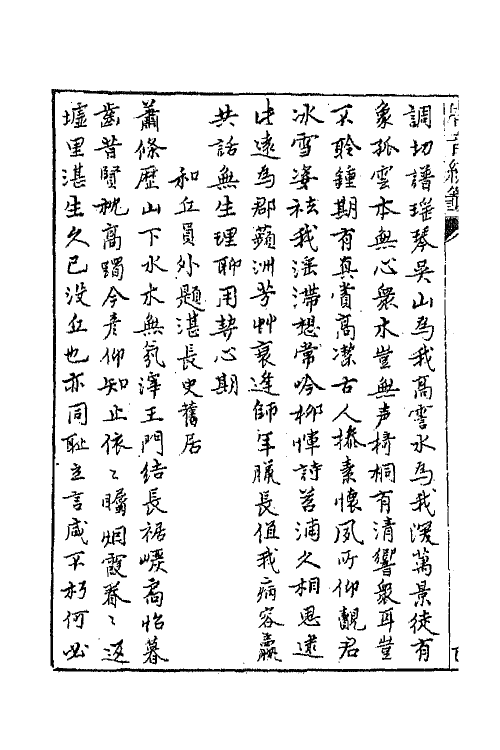 調切譜瑤琴吳山為我高霅水為我深萬景徒有
象孤雲本無心衆水豈無声椅桐有清響衆耳豈
不聆鍾期有真賞高潔古人操素懷夙所仰覿君
冰雪姿祛我滛滯想常吟柳惲詩苕浦久相思逮
此遠為郡蘋洲芳艸衰逢師年臘長值我病容羸
共話無生理聊用契心期
和丘員外題湛長史舊居
蕭條歷山下水木無氛滓王門結長裾巖扃怡暮
齒昔賢枕高躅今彥仰知止依〻矚烟霞眷〻返
墟里湛生久已沒丘也亦同恥立言咸不朽何必